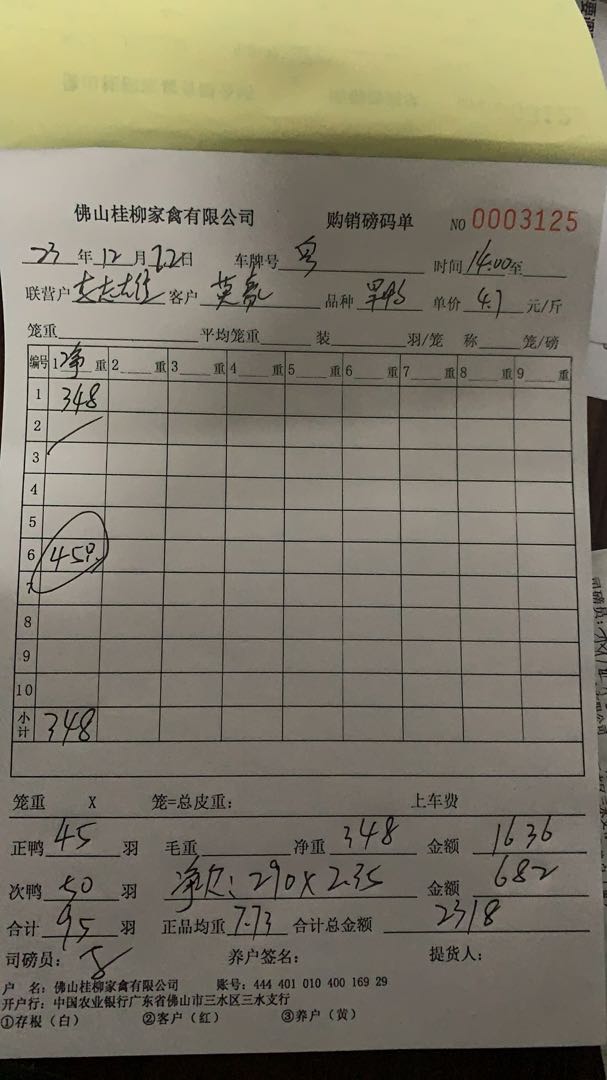 佛山桂柳家禽有限公司 购销磅码单 NO 0003125
23年12月22日 车牌号 粤 时间 14:00 至
联营户 客户 莫亮 品种 单价 4.7 元/斤
笼重 平均笼重 装 羽/笼 称 笼/磅
编号 1 净 重 2 重 3 重 4 重 5 重 6 重 7 重 8 重 9 重
1 348
2
3
4
5
6 45只
7
8
9
10
小计 348
笼重 X 笼=总皮重: 上车费
正鸭 45 羽 毛重 净重 348 金额 1636
次鸭 50 羽 净次:290×2.35 金额 682
合计 95 羽 正品均重 7.73 合计总金额 2318
司磅员: 养户签名: 提货人:
户 名: 佛山桂柳家禽有限公司 账号: 444 401 010 400 169 29
开户行: 中国农业银行广东省佛山市三水区三水支行
①存根(白) ②客户(红) ③养户(黄)